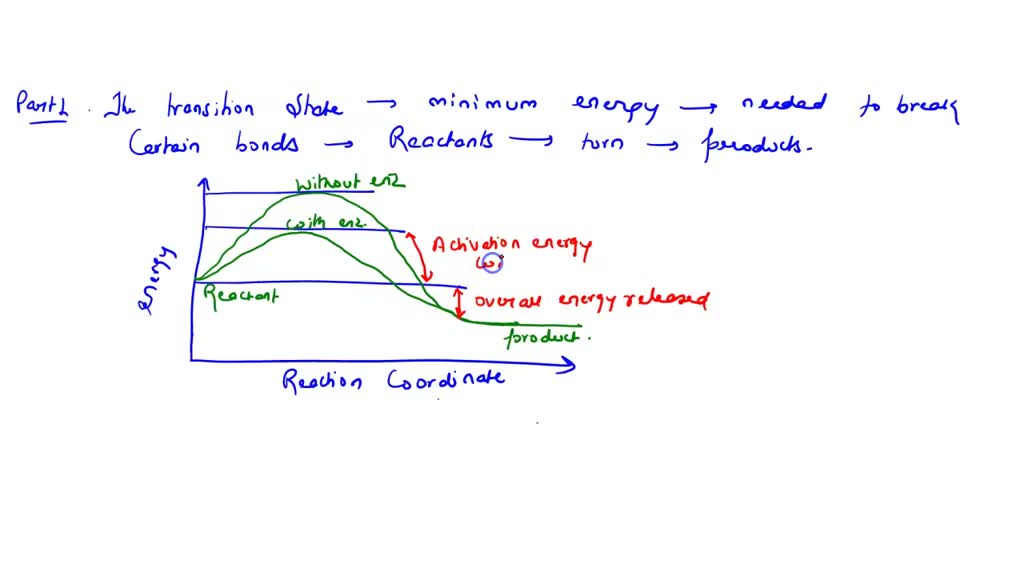 Part 1. The transition State → minimum energy → needed to break
Certain bonds → Reactants → turn → products.
without enz
with enz.
Activation energy
energy
Reactant
overall energy released
product.
Reaction Coordinate